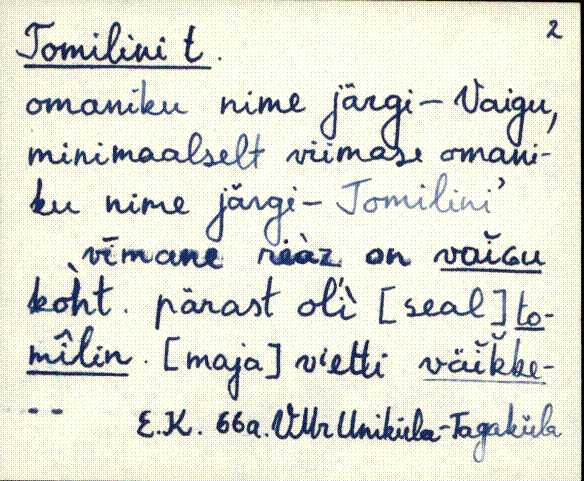 2
Tomilini t.
omaniku nime järgi – Vaigu,
minimaalselt viimase omani-
ku nime järgi – Tomilini’
vīmane reàz on vaĭGu
kòht. pärast olì [seal] to-
mîlin. [maja] vietti väĭkke-
--
E.K. 66a. VMr Uniküla-Tagaküla